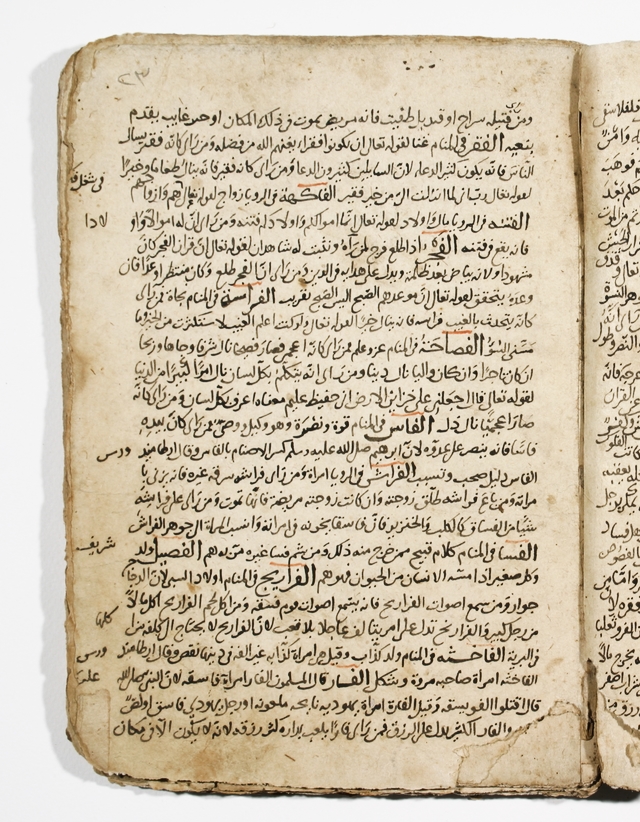 ٢٣
ومن فتيلة سراج او قنديل طفيت فانه مريض يموت في ذلك المكان او خبر غايب يقدم
بنعيه الفقر في المنام غنا لقوله تعالى ان يكونوا فقراء يغنهم الله من فضله ومن راى كانه فقير يسال
الناس فانه يكون كثير الدعا لان السايلين كثيرون الدعا ومن راى كانه فقير فانه ينال طعاما وخيرا
لقوله تعالى رب اني لما انزلت الي من خير فقير الفاكهة في الرويا زواج لقوله تعالى هم وازواجهم
الفتنة في الرويا مال واولاد لقوله تعالى انما اموالكم واولادكم فتنة ومن راى ان له اموال او اولاد
فانه يقع في فتنة الفجر اذا طلع فرج لمن راه وتثبت له شاهدان لقوله تعالى ان قران الفجر كان
مشهودا ولانه بياض بعد ظلمة ويدل على هدايه في الدين ومن راى ان الفجر طلع وكان منتظر
وعده يتحقق لقوله تعالى ان موعدهم الصبح اليس الصبح بقريب الفراسة في المنام نجاة فمن راى
كانه يتحدث بالغيب فراسه فانه ينال خيرا لقوله تعالى ولو كنت اعلم الغيب لاستكثرت من الخير وما
مسني السوء الفصاحة في المنام عز وعلم فمن راى كانه اعجمي فصار فصيحا نال شرفا وجاها وربحا
ان كان تاجرا وان كان واليا نال دينا ومن راى انه يتكلم بكل لسان نال امرا كثيرا من الدنيا
لقوله تعالى قال اجعلني على خزاين الارض اني حفيظ عليم معناه اعرف بكل لسان ومن راى كانه
صار اعجميا نال ذله الفاس في المنام قوة ونصرة وهو وكيل ووصي فمن راى كان بيده
فاسا فانه ينصر على عدوه لان ابرهيم صلى الله عليه وسلم كسر الاصنام بالفاس وقال ارطاميدورس
الفاس دليل صحب وتسبب الفراش في الرويا امراة ومن راى فراشه سرقه غيره فانه يزني با
مراته ومن باع فراشه طلق زوجته وان كانت زوجته مريضة فانها تموت ومن راى على فراشه
شيئا من الفساق كالكلب والخنزير فان فاسقا يخونه في امراته وانسب المراة الى جوهر الفراش
الفسا في المنام كلام قبيح ممن خرج منه ذلك ومن شم فسا غيره مر به هم الفصيل ولد
وكل صغير اذا مسه الانسان من الحيوان فهو هم الفراريج في المنام اولاد السبي لان الدجاج
جوار ومن سمع اصوات الفراريج فانه يسمع اصوات قوم فسقة ومن اكل لحم الفراريج اكل مالا
من رجل كبير والفراريج تدل على امر يتالف عاجلا بلا تعب لان الفراريج لا يحتاج الى كلفة من
في البرية الفاخته في المنام ولد كذاب وقيل هي امراة كذابة غير الفة في دينها نقص وقال ارطاميدورس
الفاخته امراة صاحبة مروة وشكل الفار قال المسلمون الفار امراة فاسقة لان النبي صلى الله عليه
قال اقتلوا الفويسقة وقيل الفارة امراة يهوديه نايحه ملعونه او رجل يهودي فاسق او لص
والفار الكثير يدل على الرزق فمن راى فارا يلعب بداره كثر رزقه لانه لا يكون الا في مكان
لادا
ورس
شريف
كلها
ورس